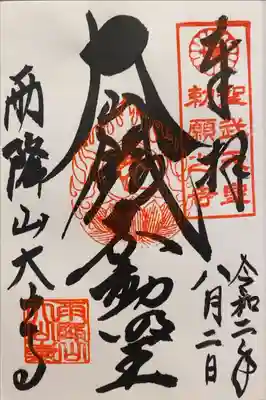 奉拝
聖武天皇
勅願之寺
令和二年
八月二日
大山鐵不動明王
雨降山大山寺
雨降山
大山寺